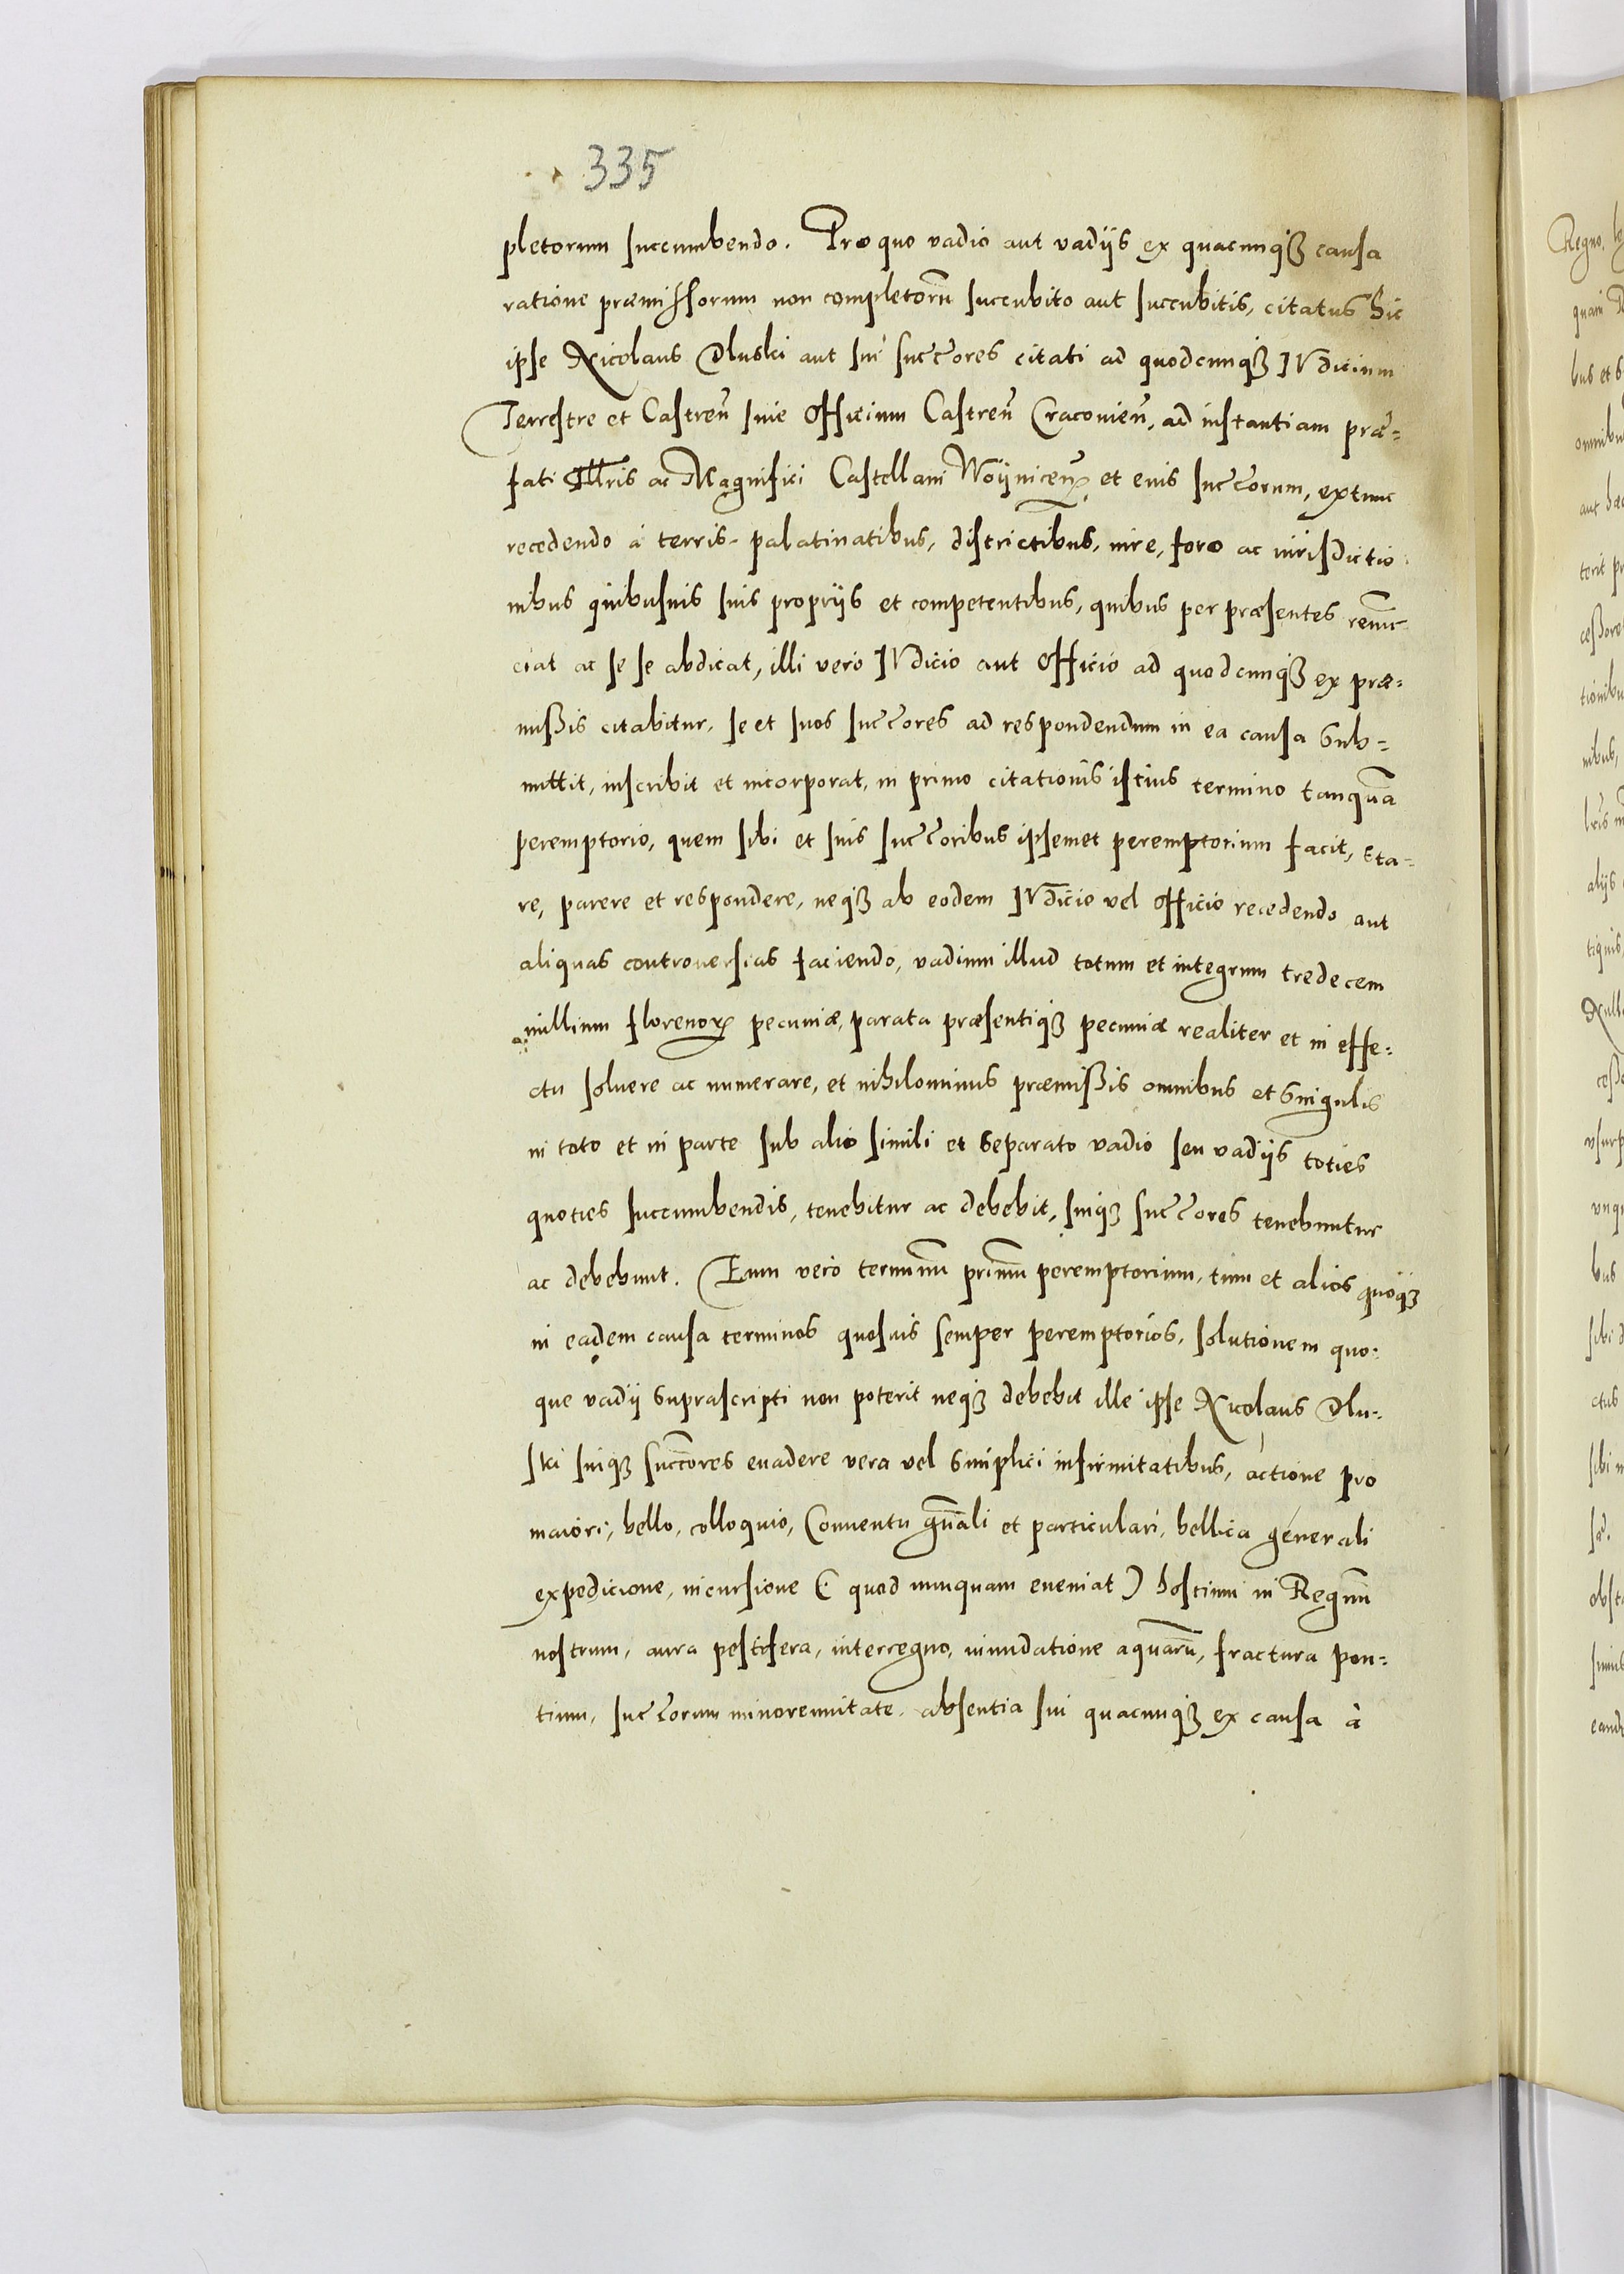 335
pletorum succumbendo. Pro quo vadio aut vadijs ex quacunqꝫ causa
ratione præmissorum non completorũ succubito aut succubitis, citatus hic
ipse Nicolaus Dluski aut sui succ̃ores citati ad quodcunqꝫ Iudicium
Terrestre et Castreñ siue Officium Castreñ Cracovieñ, ad instantiam præ=
fati Illris ac Magnifici Castellani Woÿniceñ, et eius succ̃orum, extunc
recedendo à terris, palatinatibus, districtibus, iure, foro ac iurisdictio
nibus quibusuis suis proprijs et competentibus, quibus per præsentes renũc
ciat ac se se abdicat, illi vero Iudicio aut Officio ad quodcunqꝫ ex præ=
mißis citabitur, se et suos succ̃ores ad respondendum in ea causa sub=
mittit, inscribit et incorporat, in primo citationis istius termino tanquã
peremptorio, quem sibi et suis succ̃oribus ipsemet peremptorium facit, sta=
re, parere et respondere, neqꝫ ab eodem Iudicio vel Officio recedendo aut
aliquas controuersias faciendo, vadium illud totum et integrum tredecem
millium florenoꝝ pecuniæ, parata præsentiqꝫ pecunia realiter et in effe=
ctu soluere ac numerare, et nihilominus præmißis omnibus et singulis
in toto et in parte sub alio simili et separato vadio seu vadijs toties
quoties succumbendis, tenebitur ac debebit, suiqꝫ succ̃ores tenebuntur
ac debebunt. Eum vero terminũ primũ peremptorium, tum et alios quoqꝫ
in eadem causa terminos quosuis semper peremptorios, solutionem quo=
que vadij suprascripti non poterit neqꝫ debebit ille ipse Nicolaus Dlu=
ski suiqꝫ succ̃ores euadere vera vel simplici infirmitatibus, actione pro
maiori, bello, colloquio, Conuentu gñali et particulari, bellica generali
expedicione, incursione (: quod nunquam eueniat) hostium in Regnũ
nostrum, aura pestifera, interregno, inundatione aquarũ, fractura pon=
tium, succ̃orum minorennitate, absentia sui quacunqꝫ ex causa à